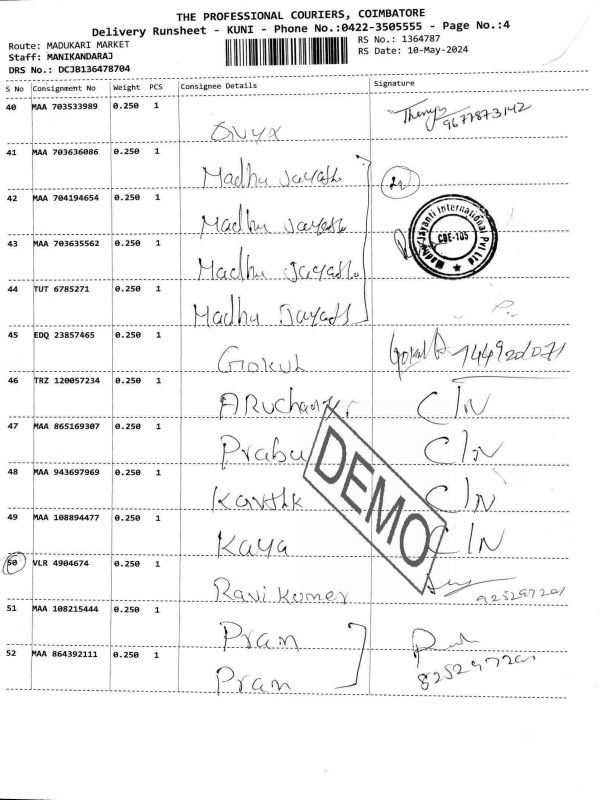 THE PROFESSIONAL COURIERS, COIMBATORE
Delivery Runsheet - KUNI - Phone No.:0422-3505555 - Page No.:4
Route: MADUKARI MARKET
RS No.: 1364787
Staff: MANIKANDARAJ
RS Date: 10-May-2024
DRS No.: DCJB136478704
S No Consignment No Weight PCS Consignee Details Signature
40 MAA 703533989 0.250 1
Onyx 9677873142
41 MAA 703636086 0.250 1
Madhu Jayath
42 MAA 704194654 0.250 1
Madhu Jayath
43 MAA 703635562 0.250 1
Madhu Jayath
Madhu Jayanti International Pvt Ltd
CBE-105
44 TUT 6785271 0.250 1
Madhu Jayath
45 EDQ 23857465 0.250 1
Gokul
46 TRZ 120057234 0.250 1
C/N
47 MAA 865169307 0.250 1
Prabu C/N
48 MAA 943697969 0.250 1
Karthk C/N
49 MAA 108894477 0.250 1
Kaya C/N
DEMO
50 VLR 4904674 0.250 1
Ravi Kumer
51 MAA 108215444 0.250 1
Pran
52 MAA 864392111 0.250 1
Pran